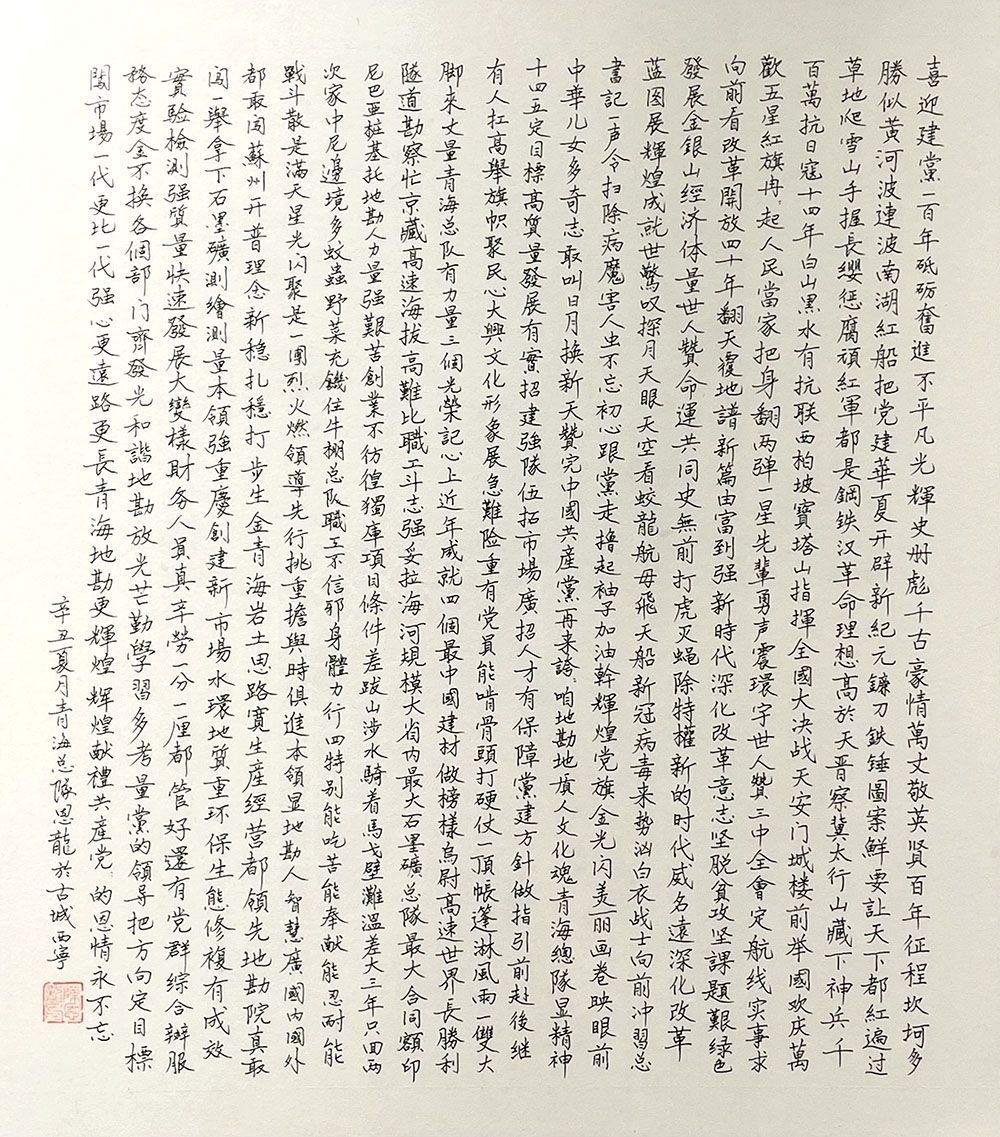 喜迎建黨一百年砥砺奮進不平凡光輝史册彪千古豪情萬丈敬英贤百年征程坎坷多
勝似黃河波連波南湖紅船把党建華夏开辟新紀元鐮刀鉄錘圖案鮮要让天下都紅遍过
草地爬雪山手握長纓惩腐頑紅軍都是鋼鉄汉革命理想高於天晋察冀太行山藏下神兵千
百萬抗日寇十四年白山黑水有抗联西柏坡寶塔山指揮全國大决战天安门城楼前举國欢庆萬
歡五星紅旗冉起人民當家把身翻两弹一星先輩勇声震環宇世人贊三中全會定航线实事求
向前看改革開放四十年翻天覆地譜新篇由富到强新時代深化改革意志坚脱貧攻坚課題艱绿色
發展金銀山經济体量世人贊命運共同史無前打虎灭蝇除特權新的时代威名遠深化改革
蓝图展輝煌成就世驚叹探月天眼天空看蛟龍航母飛天船新冠病毒来势汹白衣战士向前冲習总
書記一声令扫除病魔害人虫不忘初心跟黨走撸起袖子加油幹輝煌党旗金光闪美丽画卷映眼前
中華儿女多奇志敢叫日月换新天贊完中國共産黨再来誇咱地勘地質人文化魂青海總隊显精神
十四五定目標高質量發展有實招建強隊伍拓市場廣招人才有保障黨建方針做指引前赴後继
有人扛高舉旗帜聚民心大興文化形象展急難险重有党員能啃骨頭打硬仗一頂帳篷淋風雨一雙大
脚來丈量青海总队有力量三個光榮記心上近年成就四個最中國建材做榜樣烏尉高速世界長勝利
隧道勘察忙京藏高速海拔高難比職工斗志强妥拉海河規模大省内最大石墨礦总隊最大合同額印
尼巴亚桩基托地勘人力量强艱苦創業不彷徨獨庫項目條件差跋山涉水騎着馬戈壁灘温差大三年只回两
次家中尼邊境多蚊蟲野菜充饑住牛棚总队職工不信邪身體力行四特别能吃苦能奉献能忍耐能
戰斗散是满天星光闪聚是一團烈火燃領導先行挑重擔與時俱進本領显地勘人智慧廣國内國外
都敢闯蘇州开普理念新穩扎穩打步生金青海岩土思路寬生産經营都領先地勘院真敢
闯一舉拿下石墨礦測繪測量本領強重慶創建新市場水環地質重环保生態修複有成效
實验檢測强質量快速發展大變樣財务人員真辛勞一分一厘都管好還有党群綜合辦服
務态度金不换各個部门齊發光和諧地勘放光芒勤學習多考量黨的領导把方向定目標
闖市場一代更比一代强心更遠路更長青海地勘更輝煌辉煌献禮共産党的恩情永不忘
辛丑夏月青海总隊恩龍於古城西寧